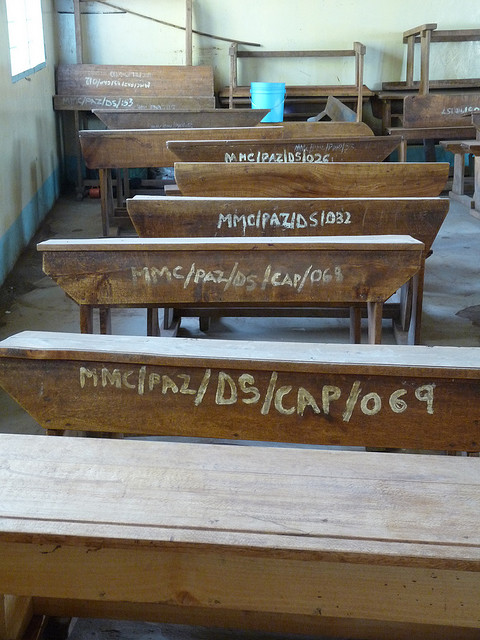 PAZ/DS/03
MMC/PAZ/DS/026
MMC/PAZ/DS/032
MMC/PAZ/DS/CAP/068
MMC/PAZ/DS/CAP/069